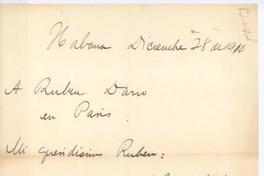 Habana Diciembre 28 de 1910
A Ruben Dario
en Paris.
Mi queridisimo Ruben: